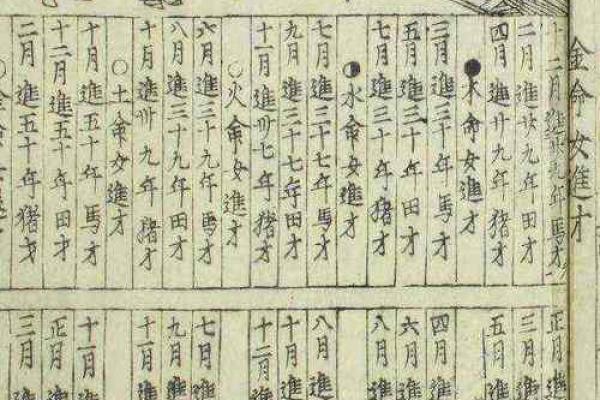 金命女進才
十二月進廿九年馬才
二月進廿九年田才
四月進廿九年猪才
●木命女進才
三月進三十年馬才
五月進三十年田才
七月進三十年猪才
◐水命女進才
七月進三十七年馬才
九月進三十七年田才
十一月進卅七年猪才
○火命女進才
六月進三十九年馬才
八月進三十九年田才
十月進卅九年猪才
○土命女進才
十月進五十年馬才
十二月進五十年田才
二月進五十年猪才
正月進
三月進
五月進
四月進
六月進
八月進
八月進
十月進
十二月進
七月進
九月進
十一月進
十一月進
正月進
三月進